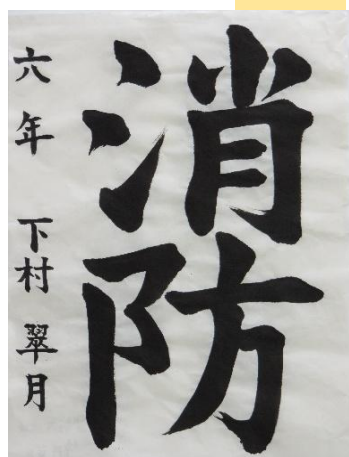 消防
六年 下村 翠月